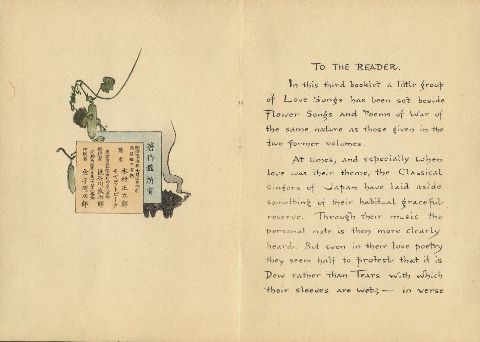 著作權所有
著者 木村正太郎
To the Reader.
In this third booklet a little group
of Love Songs has been set beside
Flower Songs and Poems of War of
the same nature as those given in the
two former volumes.
At times, and especially when
love was their theme, the Classical
Singers of Japan have laid aside
something of their habitual graceful
reserve. Through their music the
personal note is then more clearly
heard. But even in their love poetry
they seem half to protest that it is
Dew rather than Tears with which
their sleeves are wet; — in verse